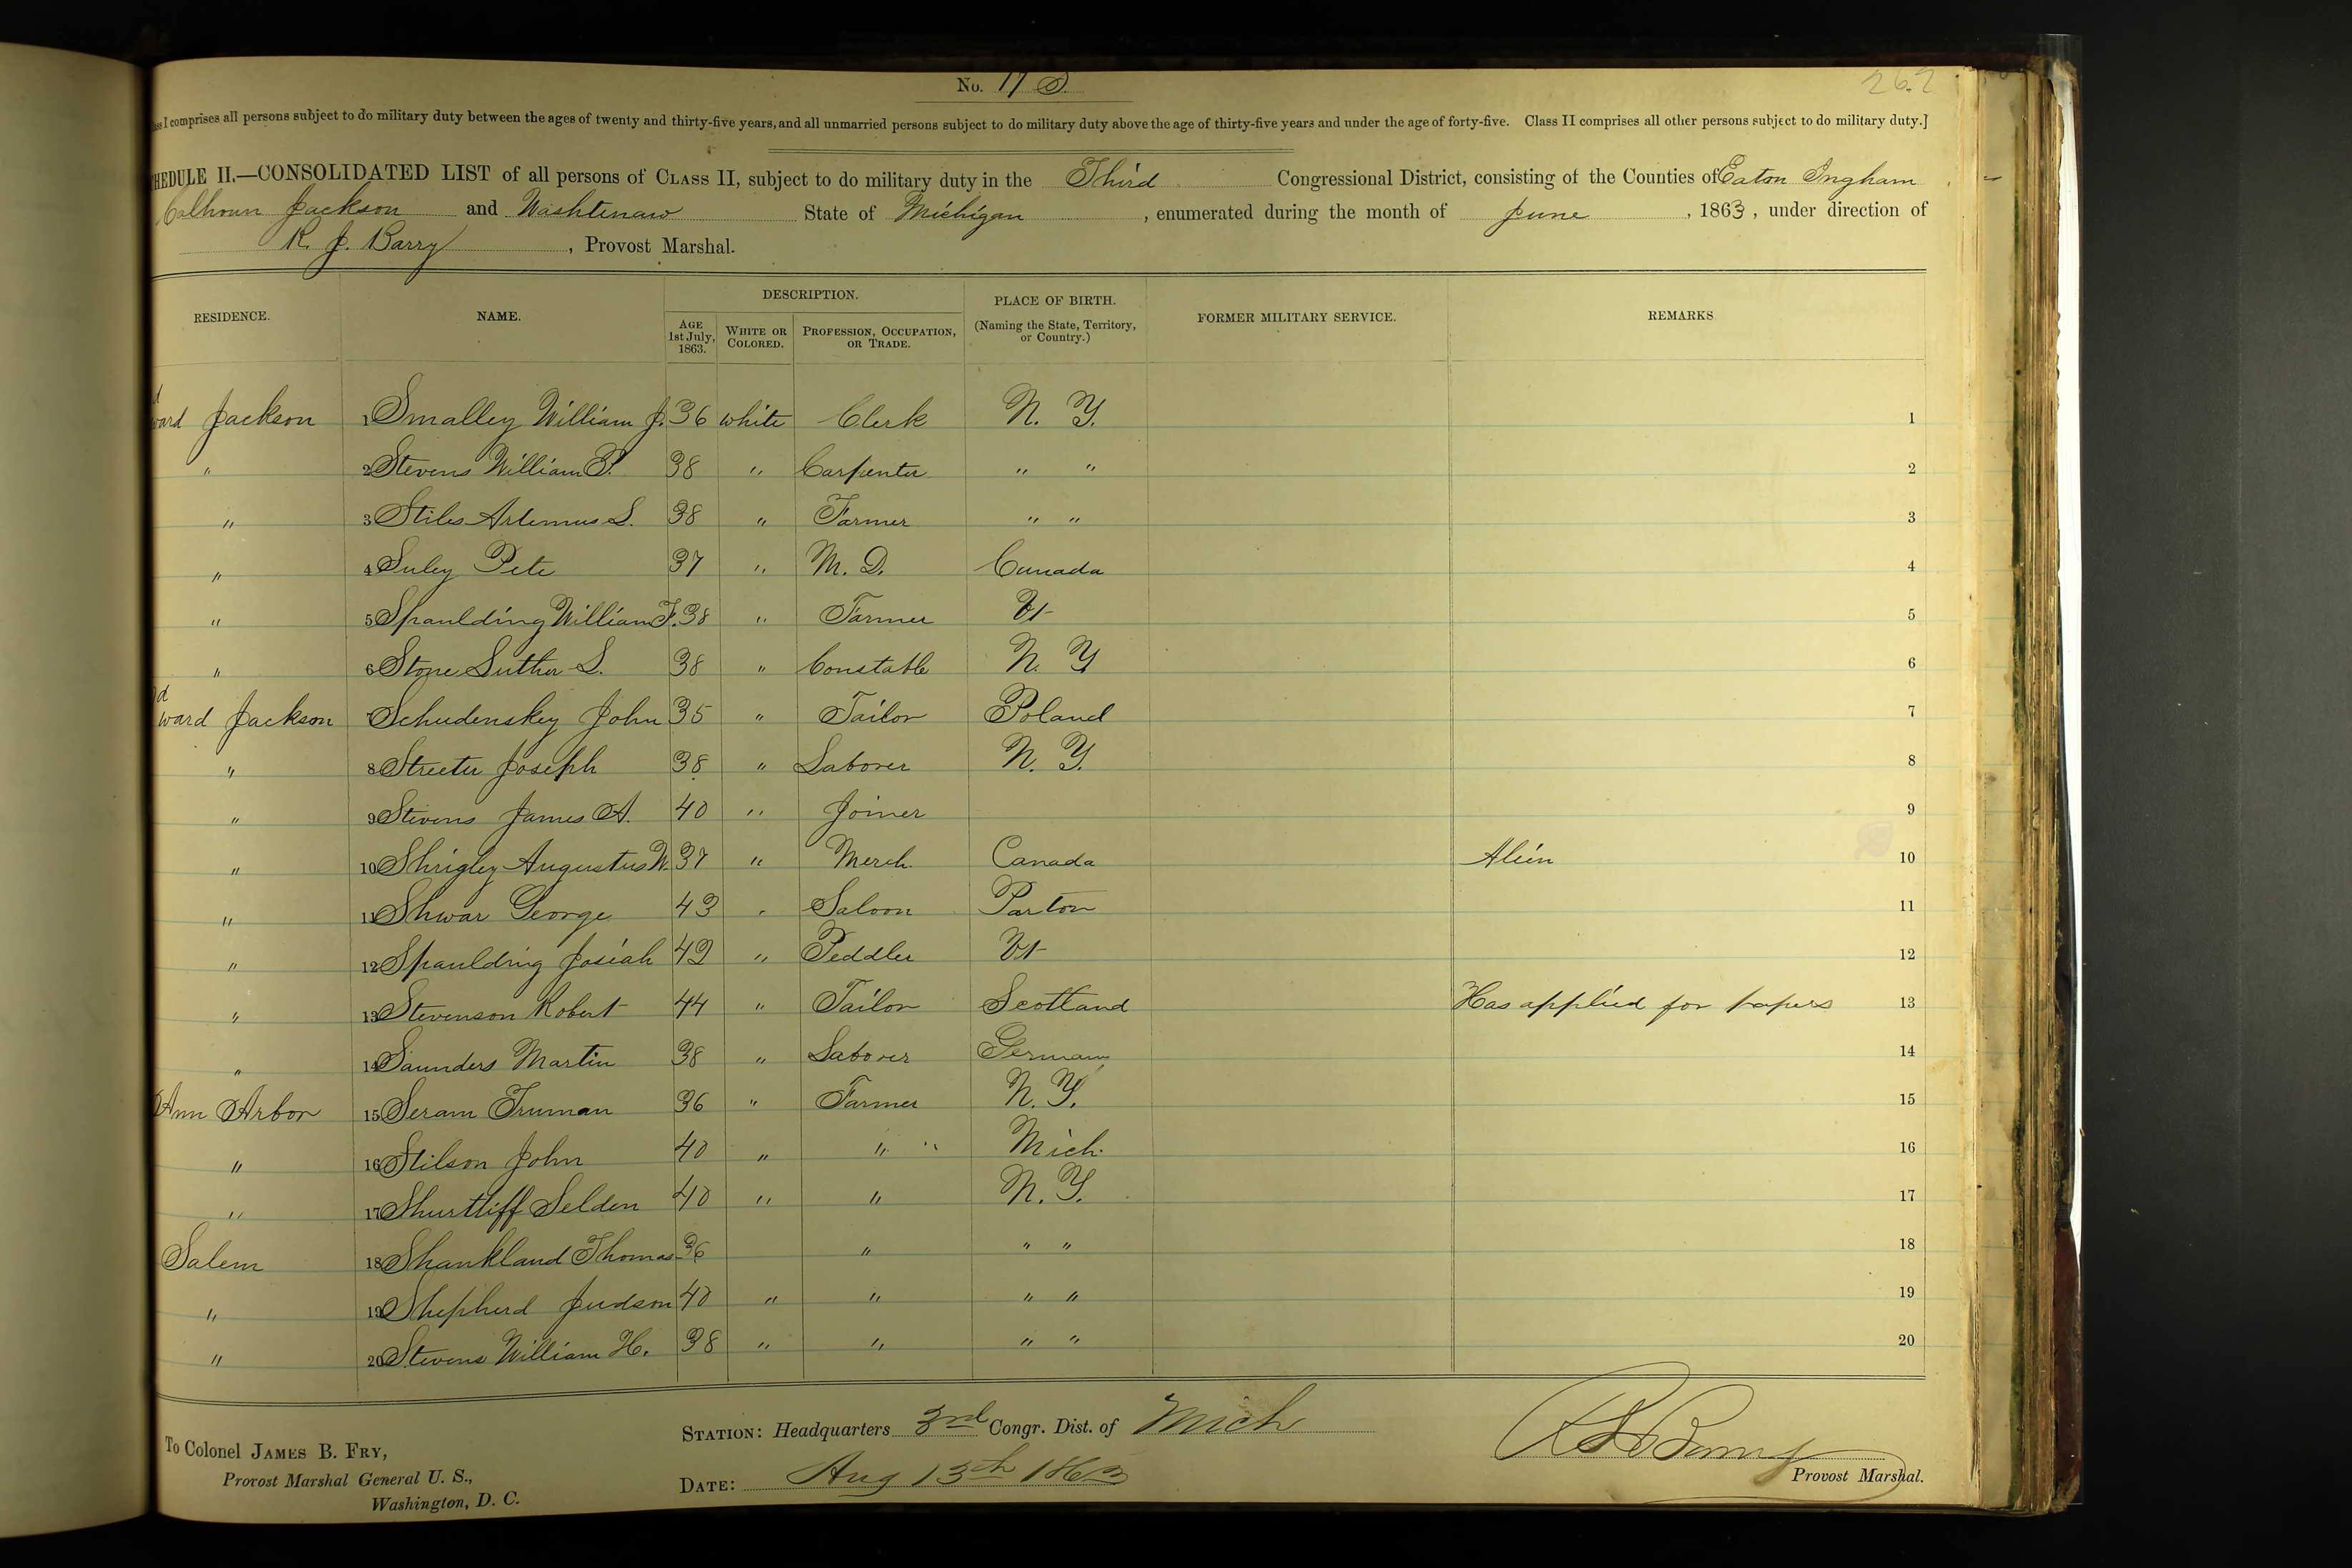 No. 17 S.
262
ass I comprises all persons subject to do military duty between the ages of twenty and thirty-five years, and all unmarried persons subject to do military duty above the age of thirty-five years and under the age of forty-five. Class II comprises all other persons subject to do military duty.]
HEDULE II.—CONSOLIDATED LIST of all persons of CLASS II, subject to do military duty in the Third Congressional District, consisting of the Counties of Eaton Ingham
Calhoun Jackson and Washtenaw State of Michigan, enumerated during the month of June, 1863, under direction of
R. J. Barry, Provost Marshal.
RESIDENCE. NAME. DESCRIPTION. PLACE OF BIRTH. (Naming the State, Territory, or Country.) FORMER MILITARY SERVICE. REMARKS
AGE 1st July, 1863. WHITE OR COLORED. PROFESSION, OCCUPATION, OR TRADE.
d
ward Jackson 1 Smalley William J. 36 white Clerk N. Y. 1
" 2 Stevens William P. 38 " Carpenter " " 2
" 3 Stiles Artemus S. 38 " Farmer " " 3
" 4 Suley Pete 37 " M. D. Canada 4
" 5 Spaulding William F. 38 " Farmer Vt 5
" 6 Stone Luther S. 38 " Constable N. Y 6
d
ward Jackson 7 Schudenskey John 35 " Tailor Poland 7
" 8 Streeter Joseph 38 " Laborer N. Y. 8
" 9 Stevens James A. 40 " Joiner 9
" 10 Shrigley Augustus W. 37 " Merch. Canada Alien 10
" 11 Shwar George 43 " Saloon Parton 11
" 12 Spaulding Josiah 42 " Peddler Vt 12
" 13 Stevenson Robert 44 " Tailor Scotland Has applied for papers 13
" 14 Saunders Martin 38 " Laborer German 14
Ann Arbor 15 Seram Truman 36 " Farmer N. Y. 15
" 16 Stilson John 40 " " " Mich. 16
" 17 Shurtliff Selden 40 " " N. Y. 17
Salem 18 Shankland Thomas 36 " " " 18
" 19 Shepherd Judson 40 " " " " 19
" 20 Stevens William H. 38 " " " " 20
To Colonel JAMES B. FRY,
Provost Marshal General U. S.,
Washington, D. C.
STATION: Headquarters 3rd Congr. Dist. of Mich
DATE: Aug 13th 1863
R J Barry
Provost Marshal.